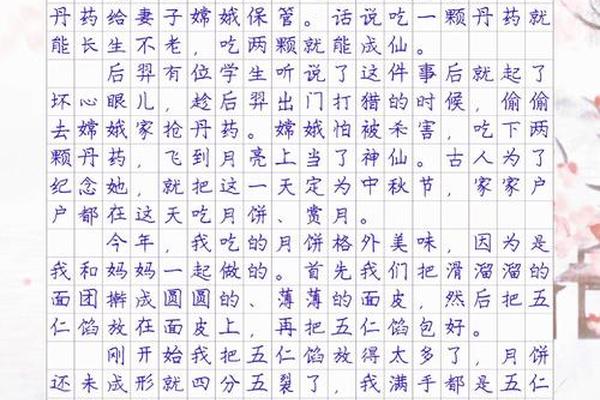 丹药给妻子嫦娥保管。话说吃一颗丹药就
能长生不老，吃两颗就能成仙。
后羿有位学生听说了这件事后就起了
坏心眼儿，趁后羿出门打猎的时候，偷偷
去嫦娥家抢丹药。嫦娥怕被杀害，吃下两
颗丹药，飞到月亮上当了神仙。古人为了
纪念她，就把这一天定为中秋节，家家户
户都在这天吃月饼、赏月。
今年，我吃的月饼格外美味，因为是
我和妈妈一起做的。首先我们把滑溜溜的
面团擀成圆圆的、薄薄的面皮，然后把五
仁馅放在面皮上，再把五仁馅包好。
刚开始我把五仁馅放得太多了，月饼
还未成形就四分五裂了，我满手都是五仁